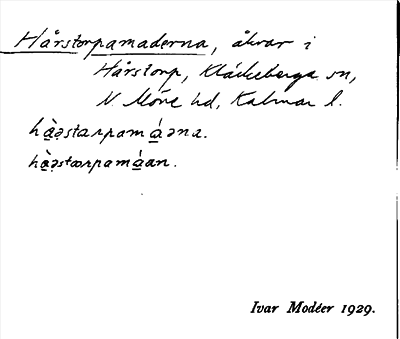 Hårstorpamaderna, åkrar i
Hårstorp, Kläckeberga sn,
N. Möre hd, Kalmar l.
hà̠ə̣starpamá̠əna.
hà̠ə̣stœrpamá̠an.
Ivar Modéer 1929.